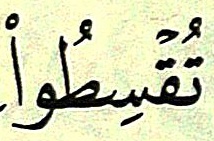 تُقْسِطُوا۟